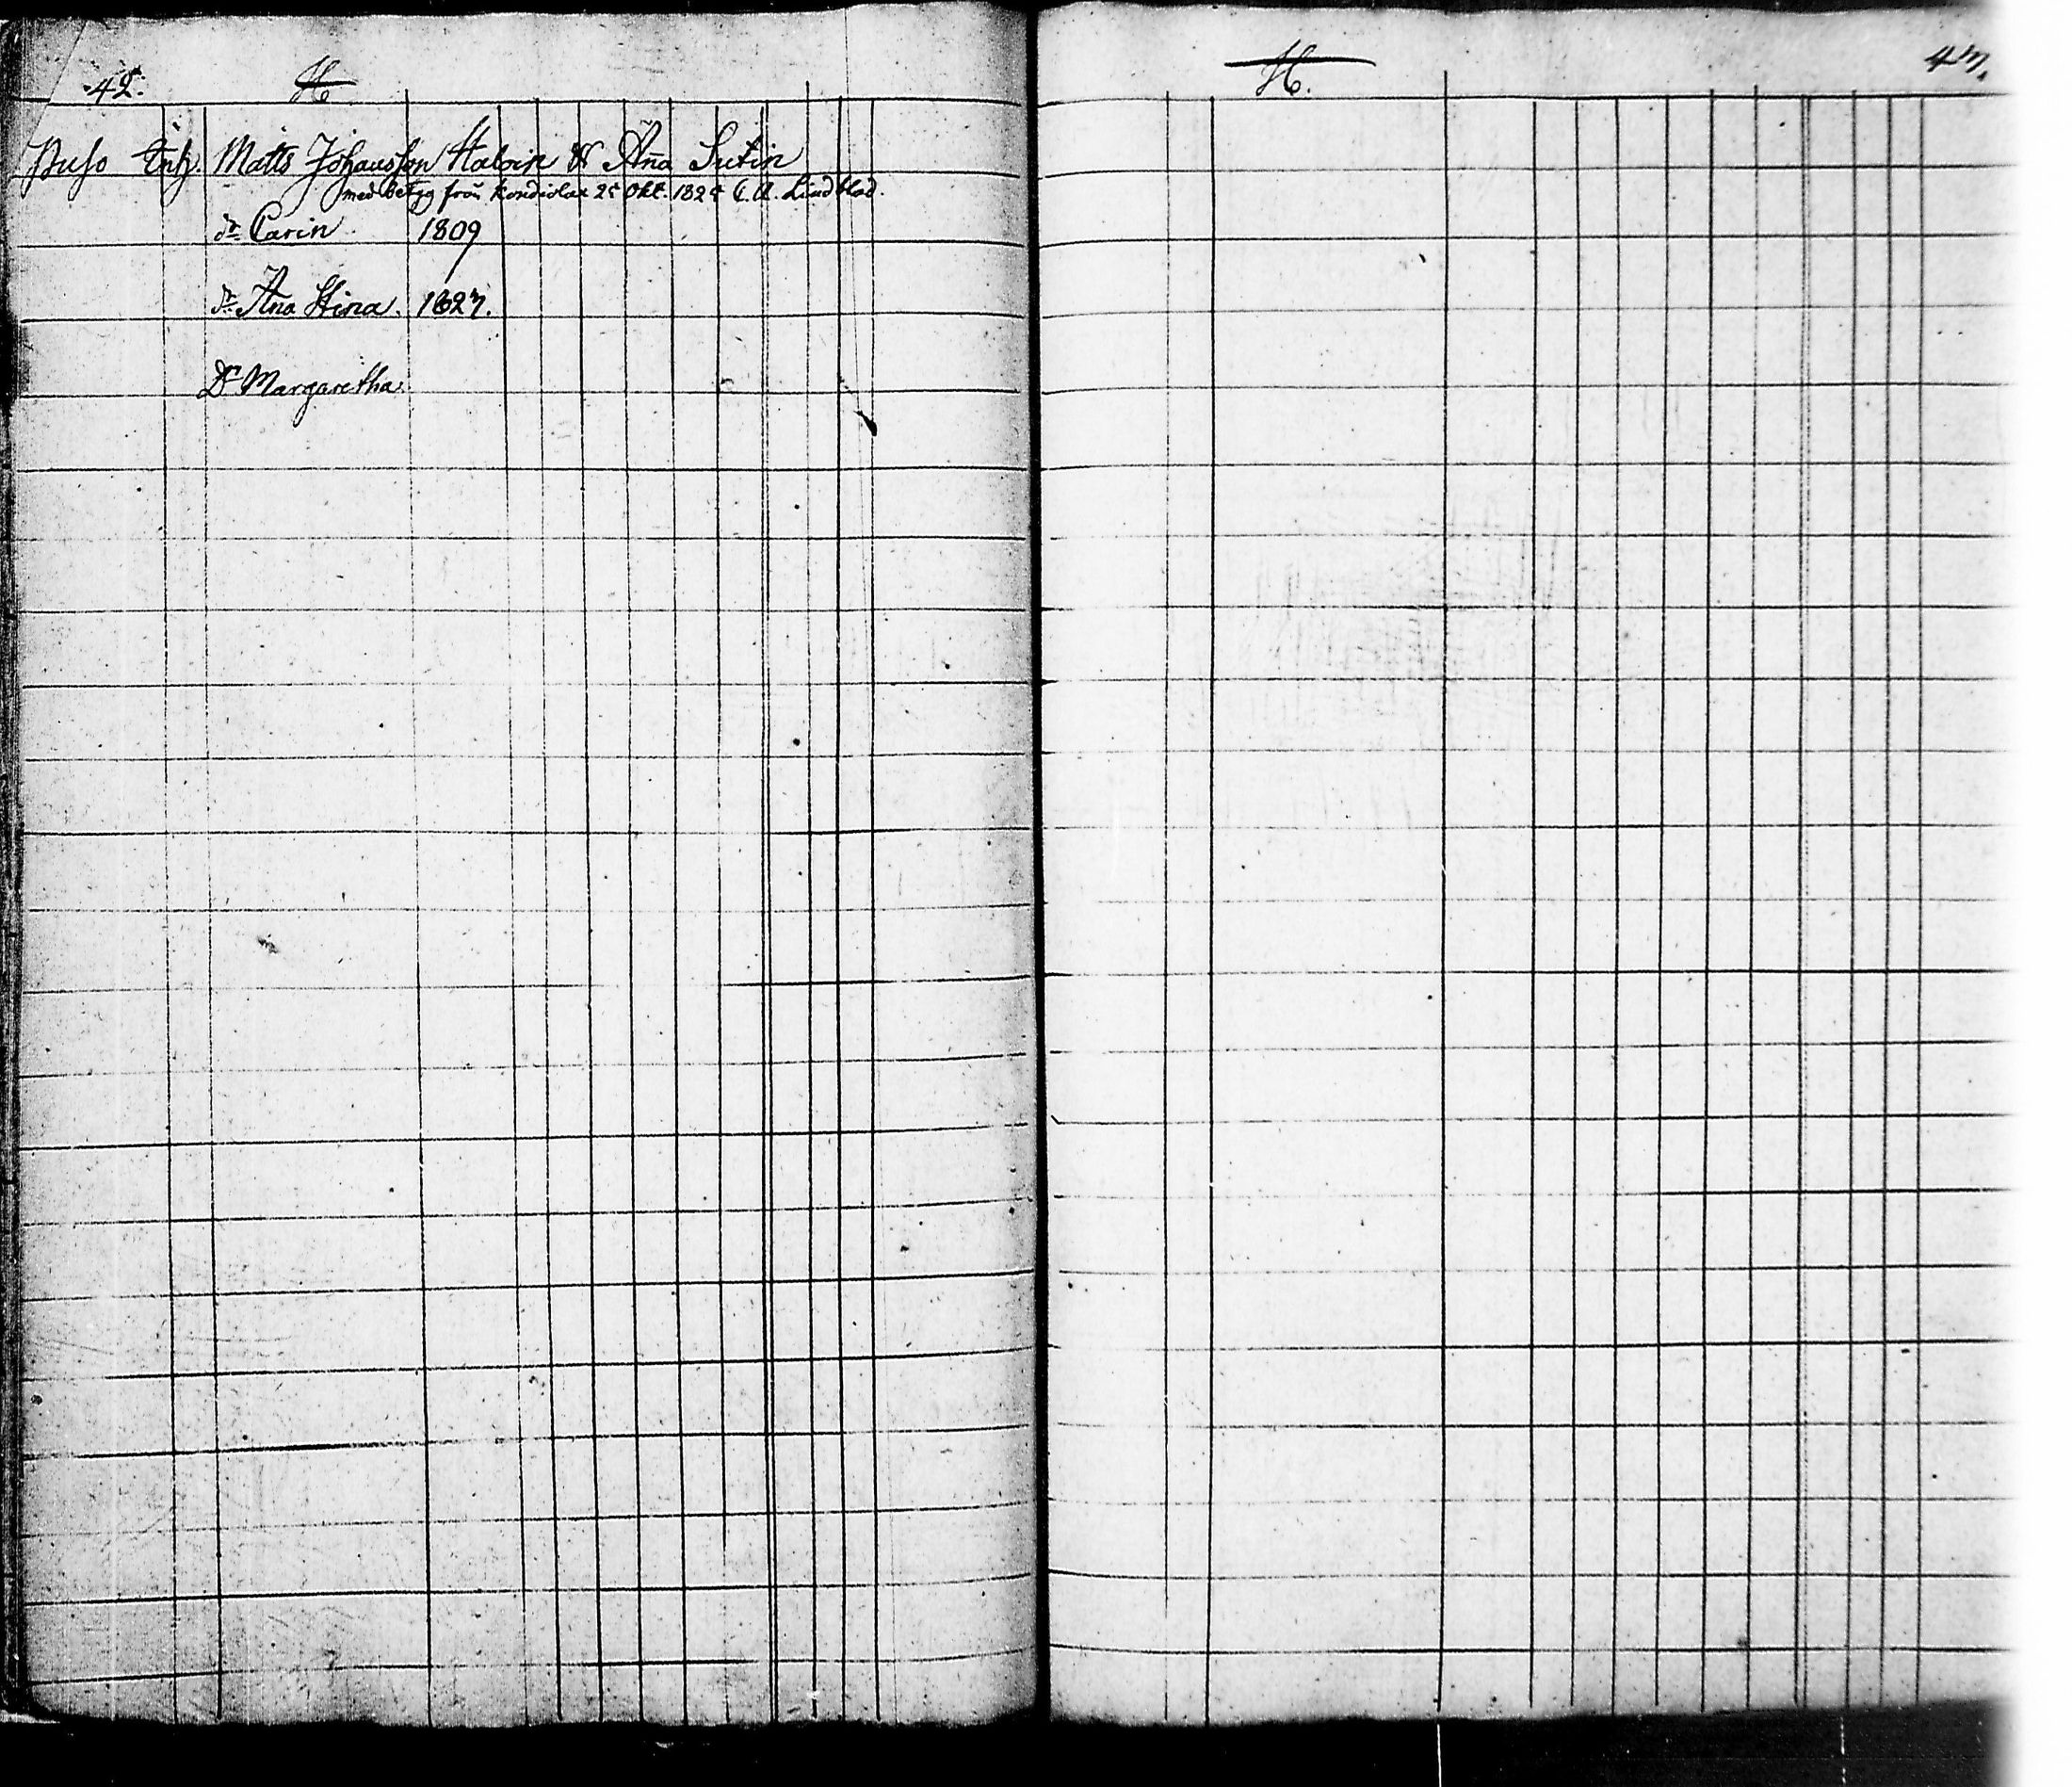 42. H
Puso Enk. Matts Johansson Haloin & Aña Sutin
med Betyg från Kondiolax 25 Okt. 1824 C. A. Lindblad.
dr Carin 1809
dr Ana Stina. 1827.
Dr Margaretha.
H. 43.